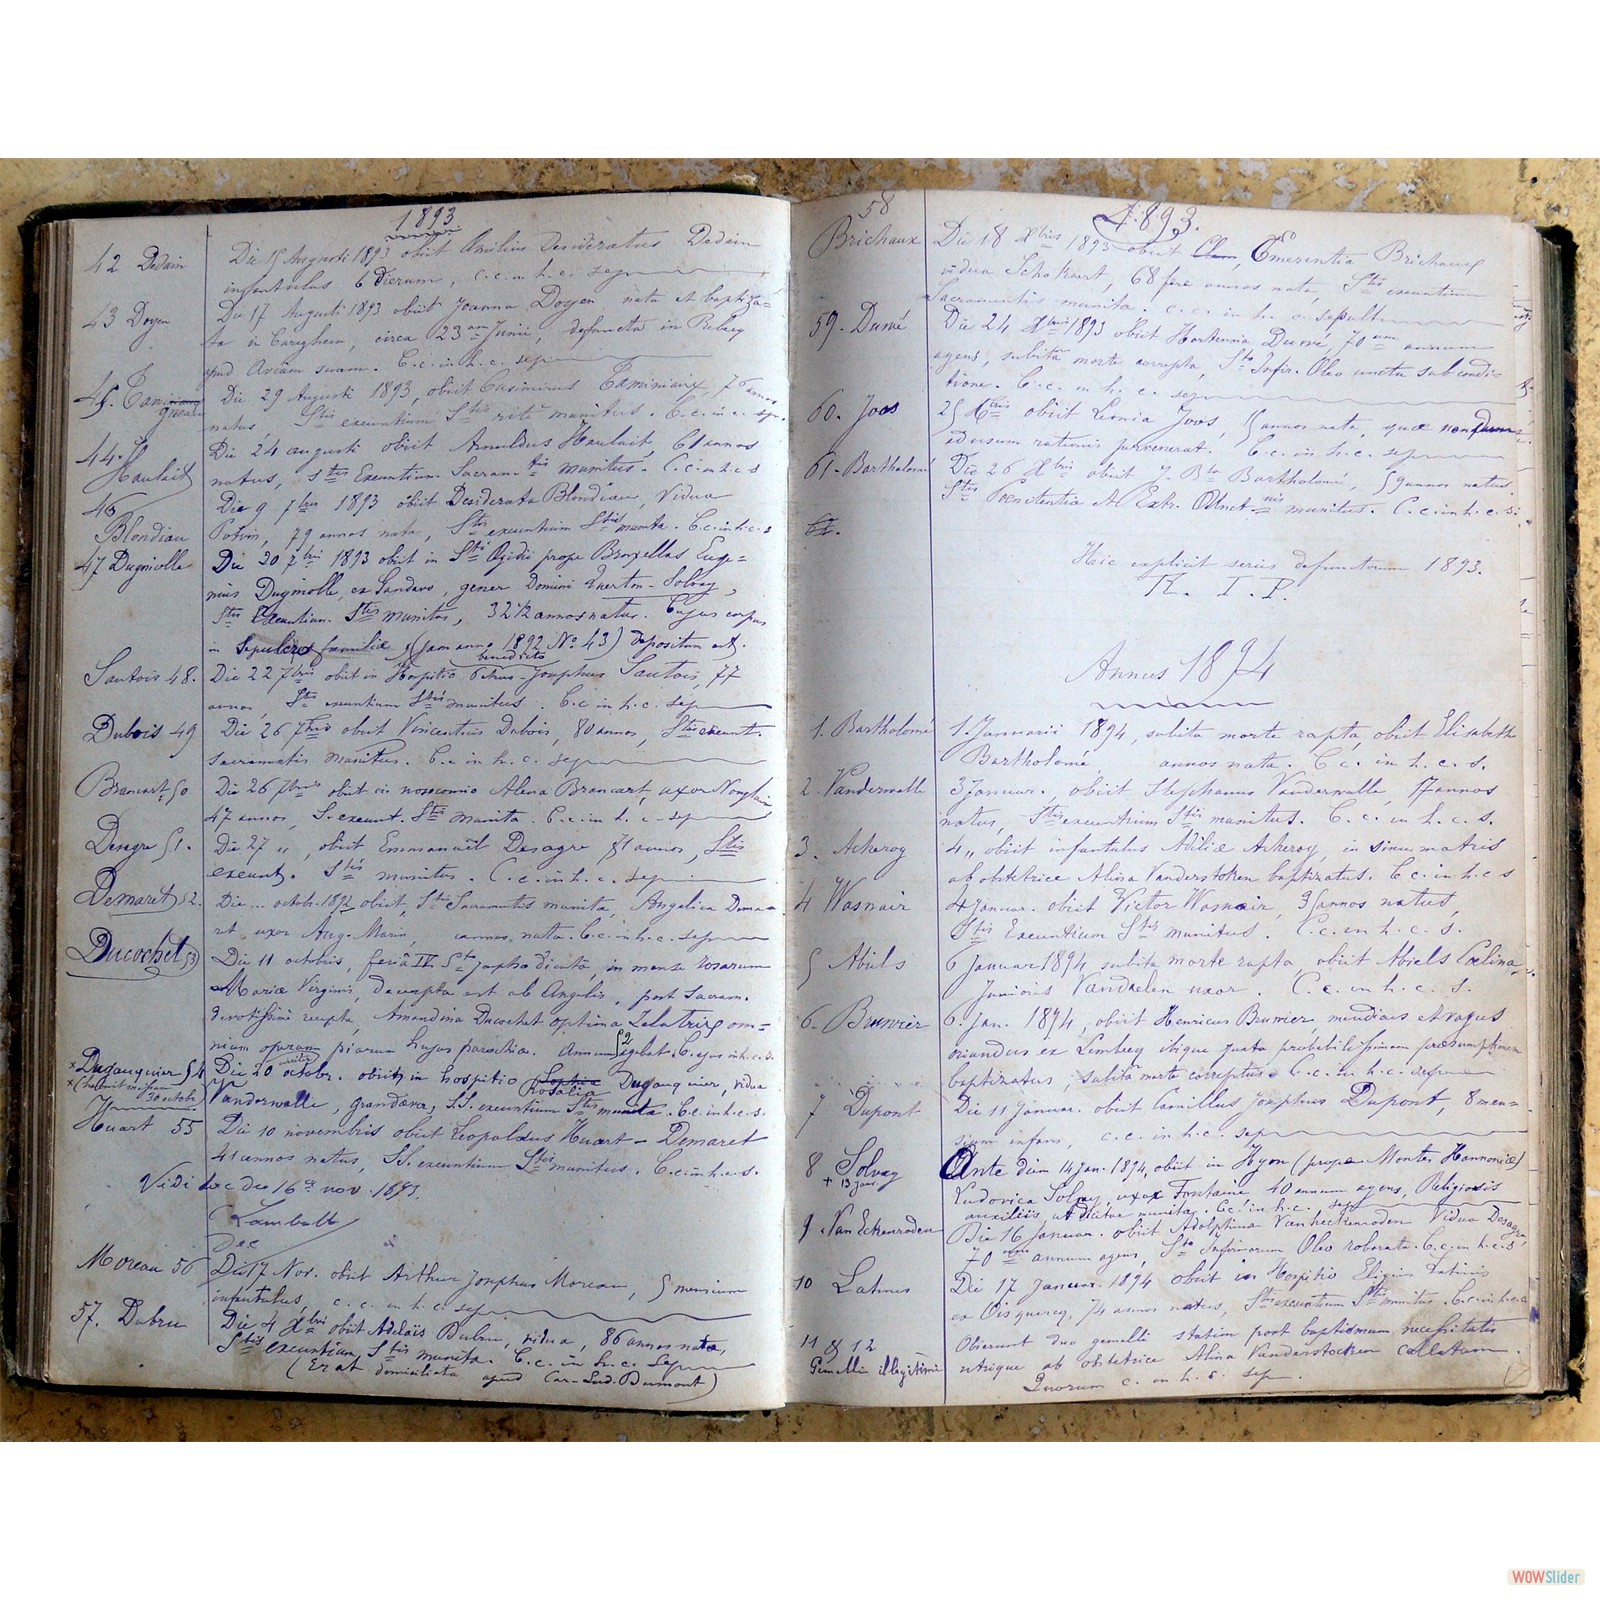 1893
42 Dedain
Die 15 Augusti 1893 obiit Desideratus Dedain
infantulus 6 dierum, c.c. in h.c. sep
43 Doyen
Die 17 Augusti 1893 obiit Joanna Doyen, nata et baptiza=
ta in circa 23am Junii, defuncta in Rebecq
apud Aviam suam. C.c. in h.c. sep
45.
Die 29 Augusti 1893, obiit Casimirus 76 annos
natus, Stis exeuntium Stis rite munitus. C.c. in c. sep.
44. Haulait
Die 24 augusti obiit Arnoldus Haulait, 61 annos
natus, Stis Exeuntium Sacram-tis munitus. C.c. in h.c. s
46 Blondiau
Die 9 7bris 1893 obiit Desiderata Blondiau, Vidua
Potvin, 79 annos nata, Stis exeuntium Stis munita. C.c. in h.c. s
47 Dugniolle
Die 20 7bri 1893 obiit in Sti Egidii prope Bruxellas Euge=
nius Dugniolle, ex gener Domini Solvay,
Stis Exeuntium Stis munitus, 32 1/2 annos natus. Cujus corpus
in Sepulcro familiæ (jam anno 1892 No 43) depositum est.
benedicto
Sautois 48.
Die 22 7bris obiit in Hospitio Petrus-Josephus Sautois, 77
annos, Stis exeuntium Stis munitus. C.c. in h.c. sep
Dubois 49
Die 26 7bris obiit Vincentius Dubois, 80 annos, Stis exeunt.
Sacramentis munitus. C.c. in h.c. sep
Brancart 50
Die 26 7bris obiit in nosocomio Alina Brancart, uxor
47 annos, S. exeunt. Stis munita. C.c. in h.c. sep
Desagre 51.
Die 27 ,, , obiit Emmanuël Desagre 71 annos, Stis
exeunt. Stis munitus. C.c. in h.c. sep
Demaret 52.
Die ... octob. 1892 obiit, Stis Sacramentis munita, Angelica Dema=
ret uxor Aug. Marin, annos nata. C.c. in h.c. sep
Ducochet 53
Die 11 octobris, feriâ IV Sto Josepho dicatâ, in mense rosarum
Mariæ Virginis, decerpta est ab Angelis, post Sacram.
devotissime recepta, Amandina Ducochet optima Zelatrix om=
nium operum piarum hujus parochiæ. Annum 52 agebat. C. ejus in h.c. s.
Dugauquier 54
30 octob.
Die 20 octobr. obiit in hospitio Rosalia Dugauquier, vidua
Vanderwalle, grandæva, SS. exeuntium Stis munita. C.c. in h.c. s.
Huart 55
Die 10 novembris obiit Leopoldus Huart - Demaret
41 annos natus, SS. exeuntium Stis munitus. C.c. in h.c. s.
Vidi hac die 16a nov. 1893.
Lambelle
Dec
Moreau 56
Die 17 Nov. obiit Arthur Josephus Moreau, 5 mensium
infantulus, c.c. in h.c. sep
57. Dubru
Die 4 Xbri obiit Adelaïs Dubru, vidua, 86 annos nata,
Stis exeuntium Stis munita. C.c. in h.c. sep
(Erat domiciliata apud Car-Lud. Dumont)
58
1893.
Brichaux
Die 18 Xbris 1893 obiit Clem, Emerentia Brichaux
vidua Schokaert, 68 fere annos nata, Stis exeuntium
Sacramentis munita. c.c. in h.c. sepult
59. Dumé
Die 24 Xbri 1893 obiit Hortensia Dumé, 70um annum
agens, subitâ morte correpta, Sto Infir. Oleo uncta sub condi=
tione. C.c. in h.c. sep
60. Joos
25 Xbris obiit Leonia Joos, 15 annos nata, quæ nondum
ad usum rationis pervenerat. C.c. in h.c. sep
61 - Bartholomé
Die 26 Xbri obiit J. Bta Bartholomé, 59 annos natus.
Stis Poenitentia et Extr. Unct-nis munitus. C.c. in h.c. s.
62.
Hic explicit series defunctorum 1893.
R. I. P.
Annus 1894
1. Bartholomé
1. Januarii 1894, subita morte rapta, obiit Elisabeth
Bartholomé, annos nata. C c. in h.c. s.
2. Vanderwalle
3 Januar., obiit Stephanus Vanderwalle, 17 annos
natus, Stis exeuntium Stis munitus. C.c. in h.c. s.
3. Acheroy
4 ,, obiit infantulus Adiliæ Acheroy, in sinu matris
ab obstetrice Alina Vanderstoken baptizatus. C.c. in h.c. s
4 Wasnair
4 Januar. obiit Victor Wasnair, 35 annos natus,
Stis Exeuntium Stis munitus. C.c. in h.c. s.
5 Abiels
6 Januar 1894 subita morte rapta, obiit Abiels Celina,
Junioris Vandaelen uxor. C.c. in h.c. s.
6. Bruwier
6. Jan. 1894, obiit Henricus Bruwier, mendicus et vagus
oriundus ex Lembecq ibique juxta probabilissimam præsumptionem
baptizatus, subitâ morte correptus. C.c. in h.c. sep
7 Dupont
Die 11 Januar. obiit Camillus Josephus Dupont, 8 men=
sium infans, c.c. in h.c. sep
8 Solvay
+ 13 jan.
Ante diem 14 Jan. 1894, obiit in Hyon (prope Montes Hannoniæ)
Ludovica Solvay, uxor Fontaine, 40 annum agens, Religionis
auxiliis, ut dicitur munita. C.c. in h.c. sep
9. Van Eckenroden
Die 16 Januar. obiit Adolphina Vanheckenroden Vidua Desagre,
70um annum agens, Sto Infirmorum Oleo roborata. C.c. in h.c. s
10 Latinis
Die 17 Januar. 1894 obiit in Hospitio Eligius Latinis
ex Oisquercq, 74 annos natus, Stis exeuntium Stis munitus. C.c. in h.c. s
11 & 12
Gemelli illegitimi
Obierunt duo gemelli statim post baptismum necessitatis
utrique ab obstetrice Alina Vanderstocken collatum.
Quorum c. in h.c. sep.
WOWSlider